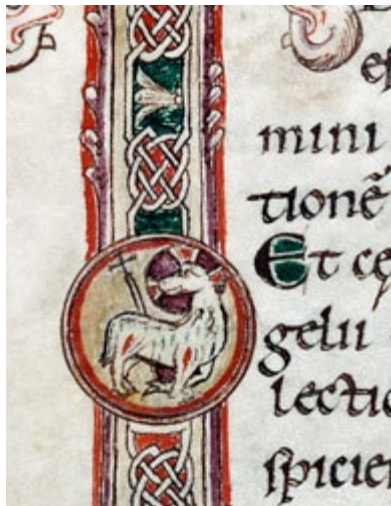 mini
tionē
Et ce
gelii
lectio
spicie